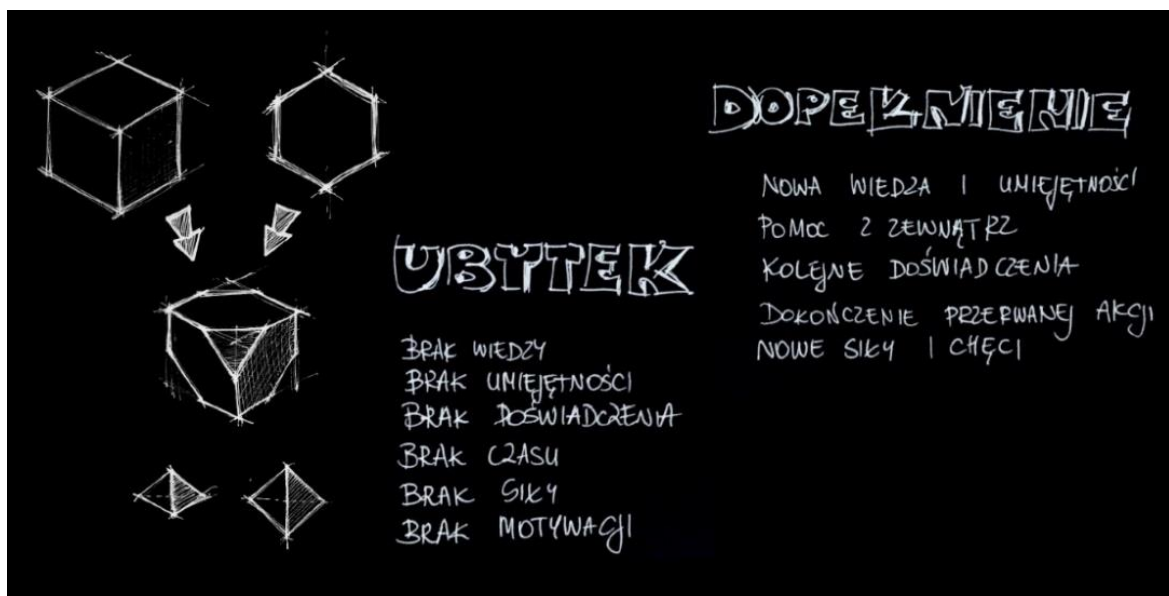 UBYTEK
BRAK WIEDZY
BRAK UMIEJĘTNOŚCI
BRAK DOŚWIADCZENIA
BRAK CZASU
BRAK SIŁY
BRAK MOTYWACJI
DOPEŁNIENIE
NOWA WIEDZA I UMIEJĘTNOŚCI
POMOC Z ZEWNĄTRZ
KOLEJNE DOŚWIADCZENIA
DOKOŃCZENIE PRZERWANEJ AKCJI
NOWE SIŁY I CHĘCI